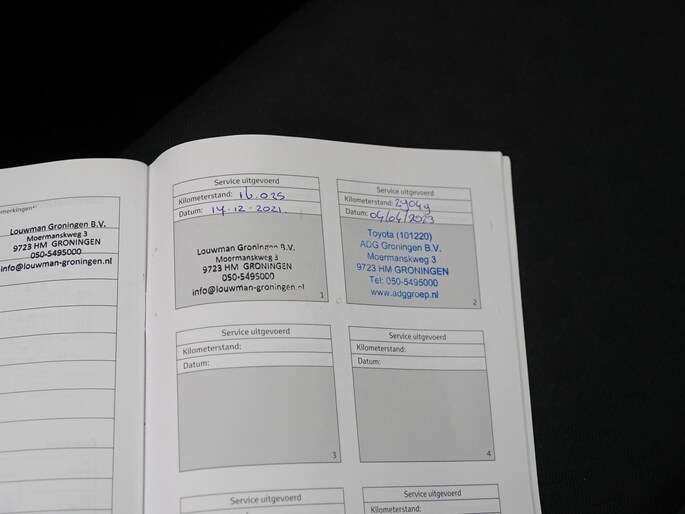 merkingen
Louwman Groningen B.V.
Moermanskweg 3
9723 HM GRONINGEN
050-5495000
info@louwman-groningen.nl
Service uitgevoerd
Kilometerstand: 16.025
Datum: 14-12-2021.
Louwman Groningen B.V.
Moermanskweg 3
9723 HM GRONINGEN
050-5495000
info@louwman-groningen.nl
1
Service uitgevoerd
Kilometerstand: 29049
Datum: 04/04/2023
Toyota (101220)
ADG Groningen B.V.
Moermanskweg 3
9723 HM GRONINGEN
Tel: 050-5495000
www.adggroep.nl
2
Service uitgevoerd
Kilometerstand:
Datum:
3
Service uitgevoerd
Kilometerstand:
Datum:
4
Service uitgevoerd
Service uitgevoerd
Kilometerstand: